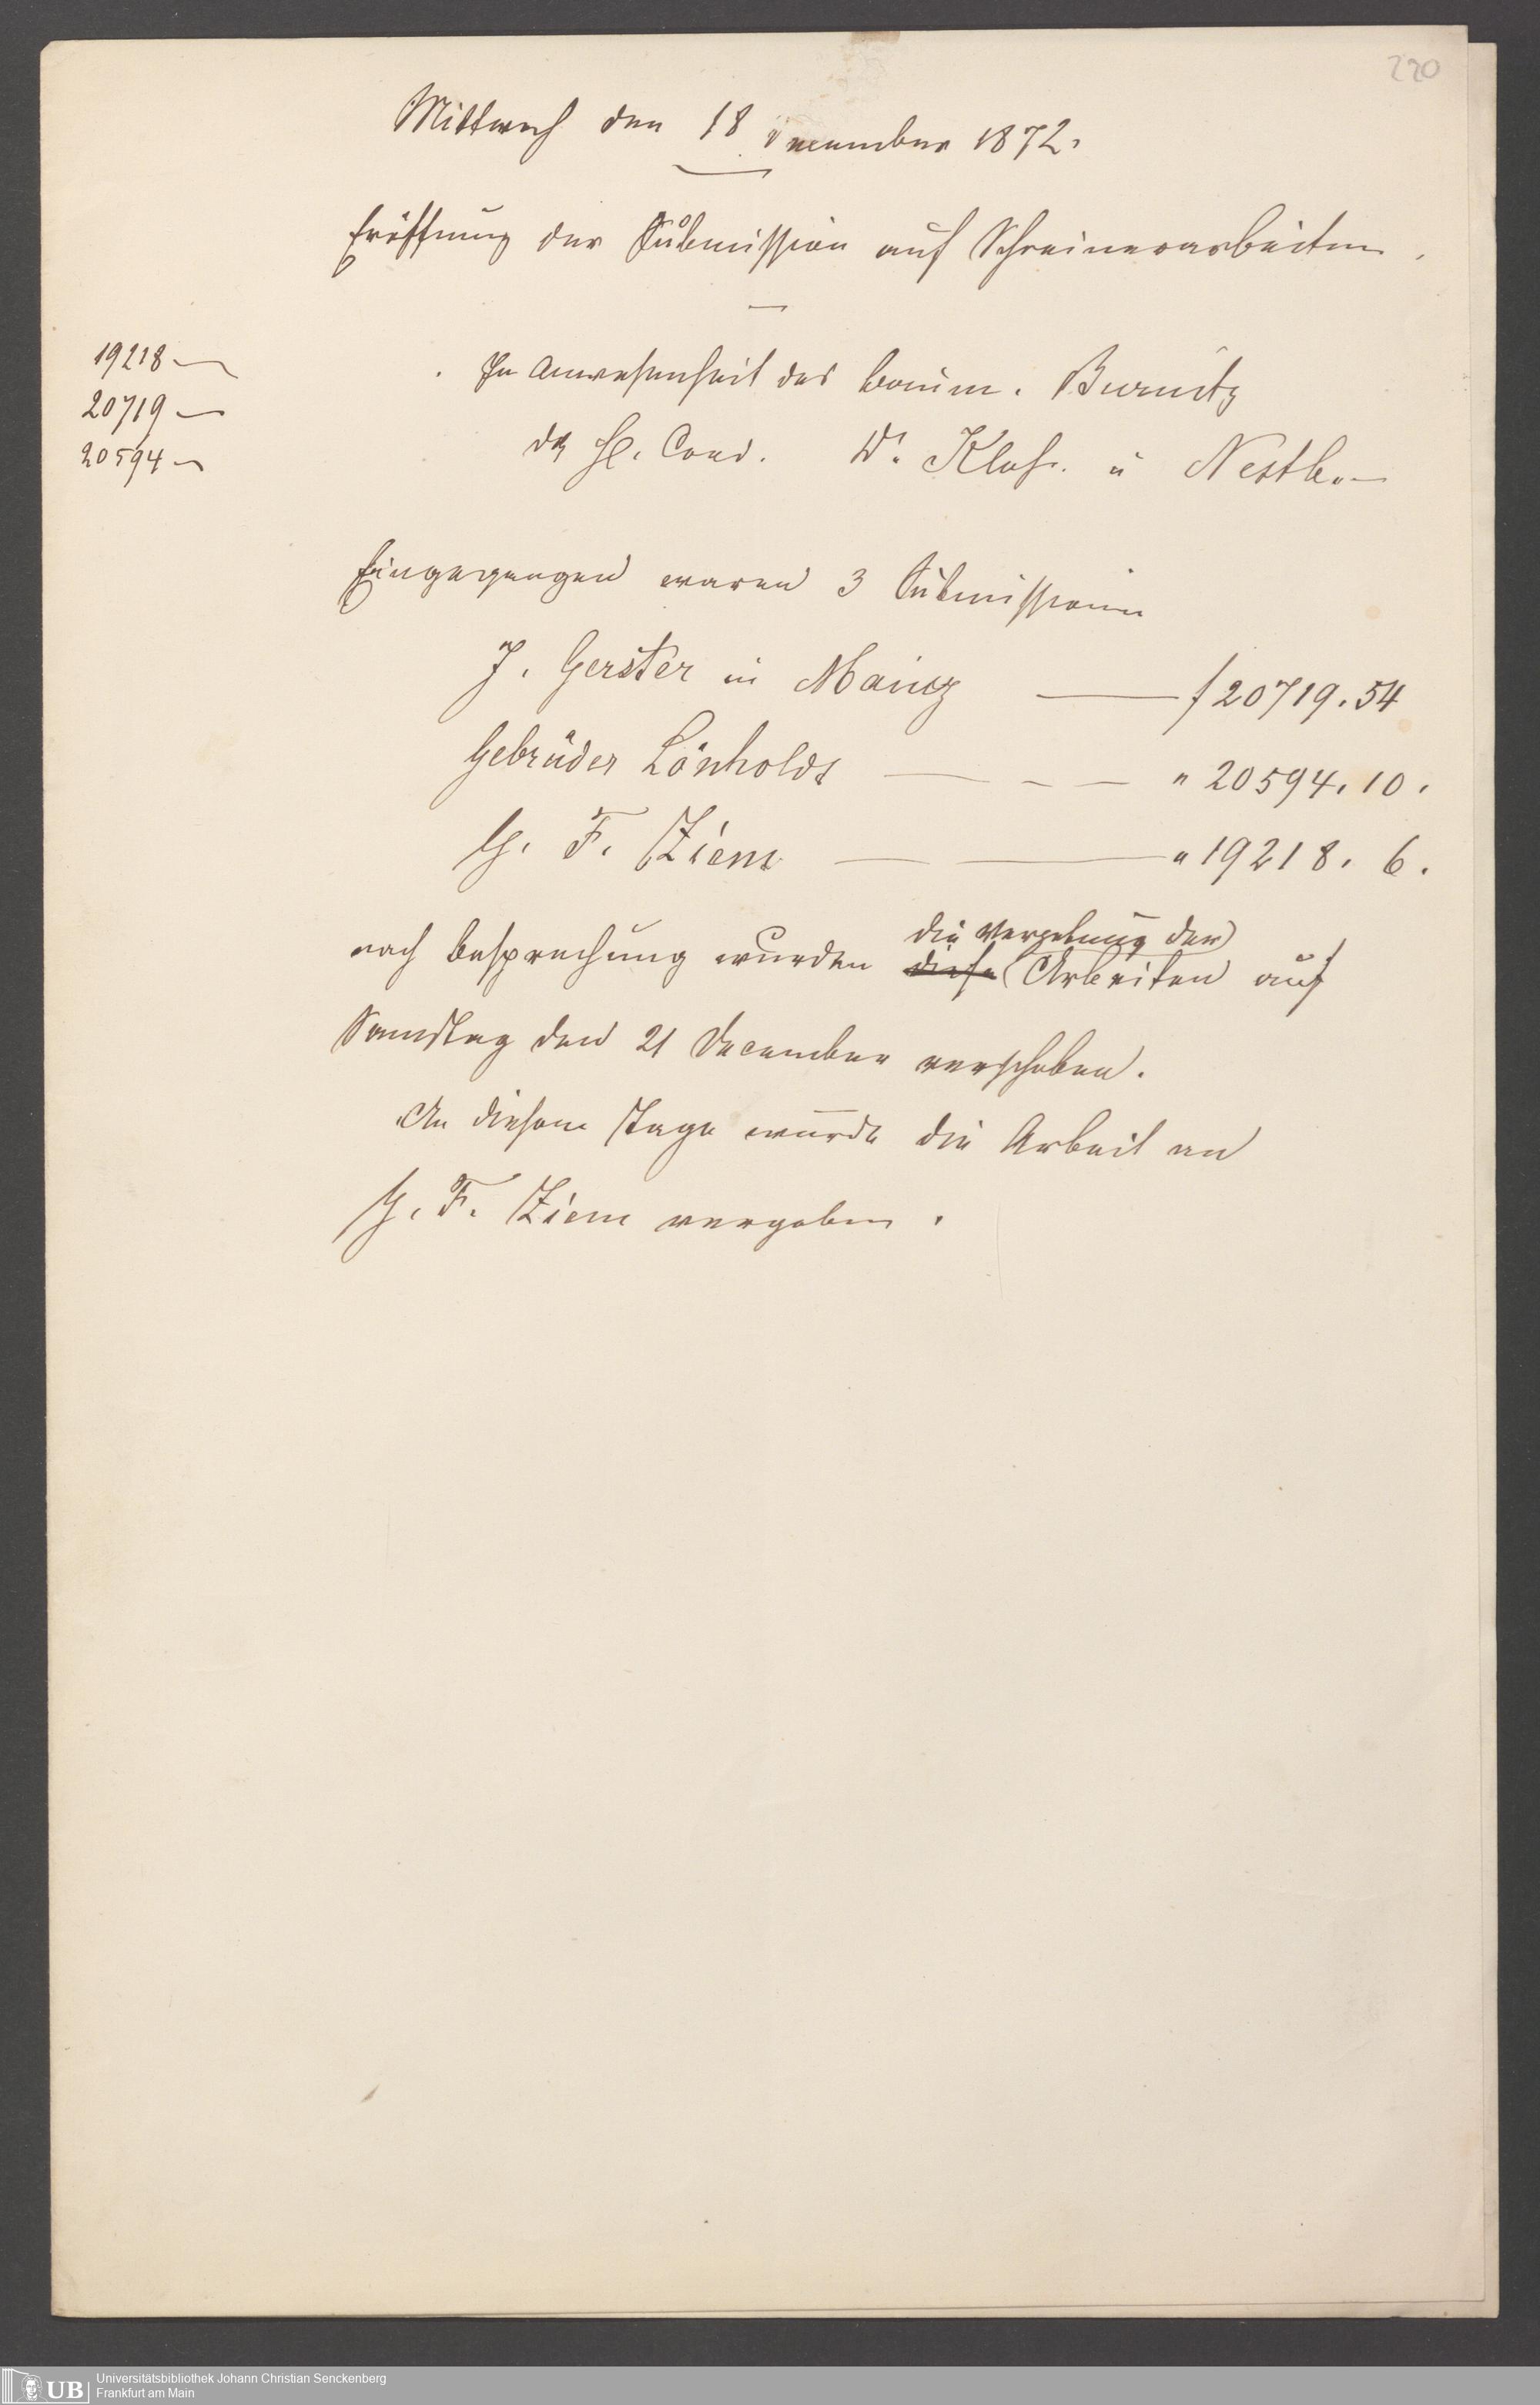 220
Mittwoch den 18 December 1872.
Eröffnung der Submission auf Schreinerarbeiten.
19218 —
20719 —
20594 —
In Anwesenheit des Baum. Burnitz
d H. Cons. Dr. Kloß. u Nestle. —
Eingegangen waren 3 Submissionen
J. Gerster in Mainz — f 20719. 54
Gebrüder Lönholdt — — — " 20594. 10.
G. F. Ziem — — " 19218. 6.
die Vergebung der
nach Besprechung wurden diese Arbeiten auf
Samstag den 21 December verschoben.
An diesem Tage wurde die Arbeit an
G. F. Ziem vergeben.
UB
Universitätsbibliothek Johann Christian Senckenberg
Frankfurt am Main